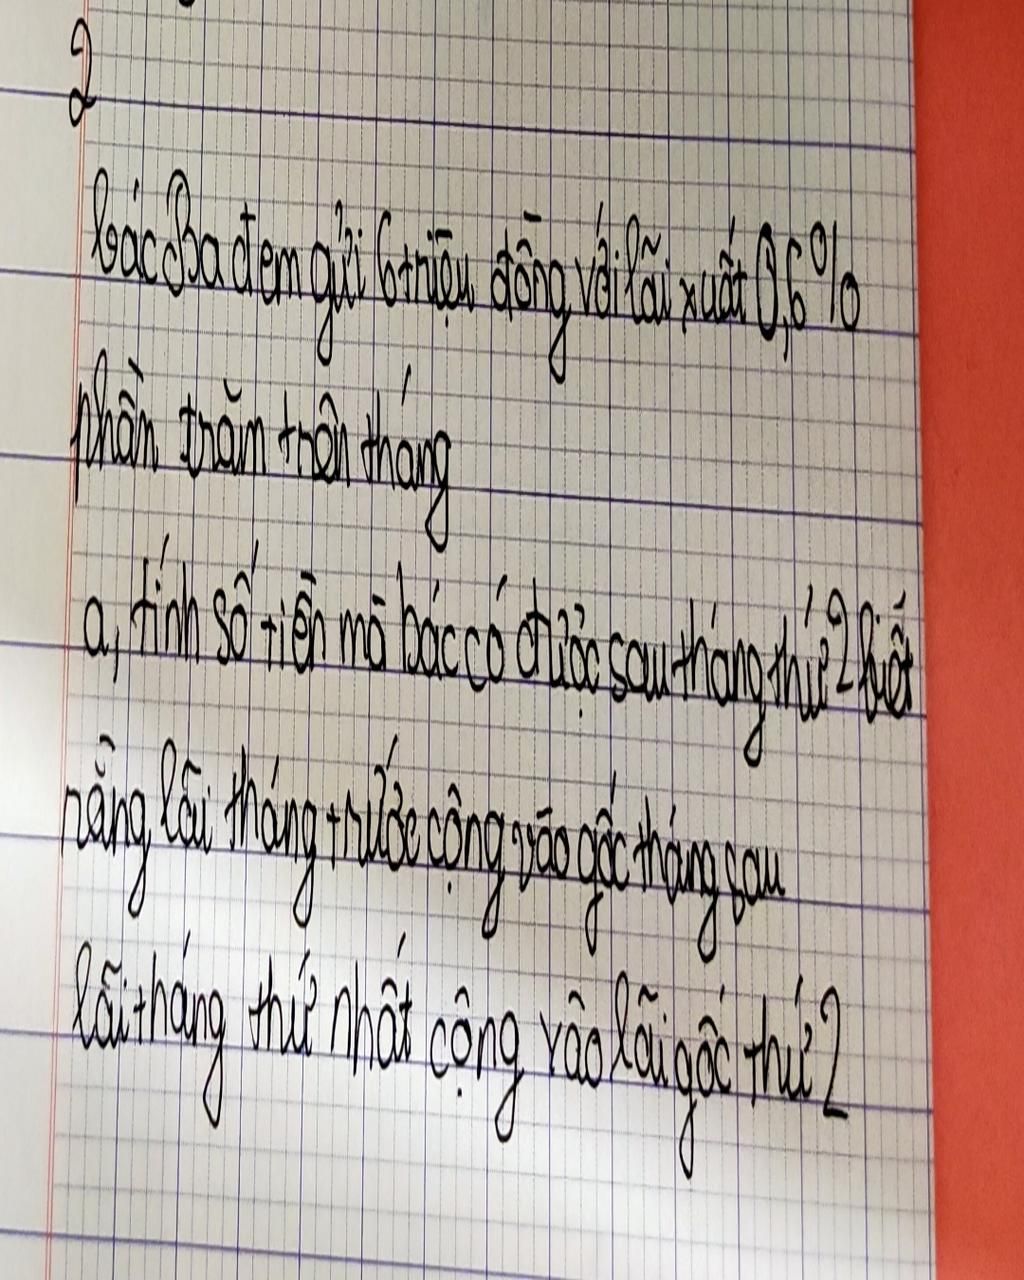 2
bác Ba đem gửi 6 triệu đồng với lãi xuất 0,6%
phần trăm trên tháng
a, tính số tiền mà bác có được sau tháng thứ 2 biết
rằng lãi tháng trước cộng vào gốc tháng sau
lãi tháng thứ nhất cộng vào lãi gốc thứ 2